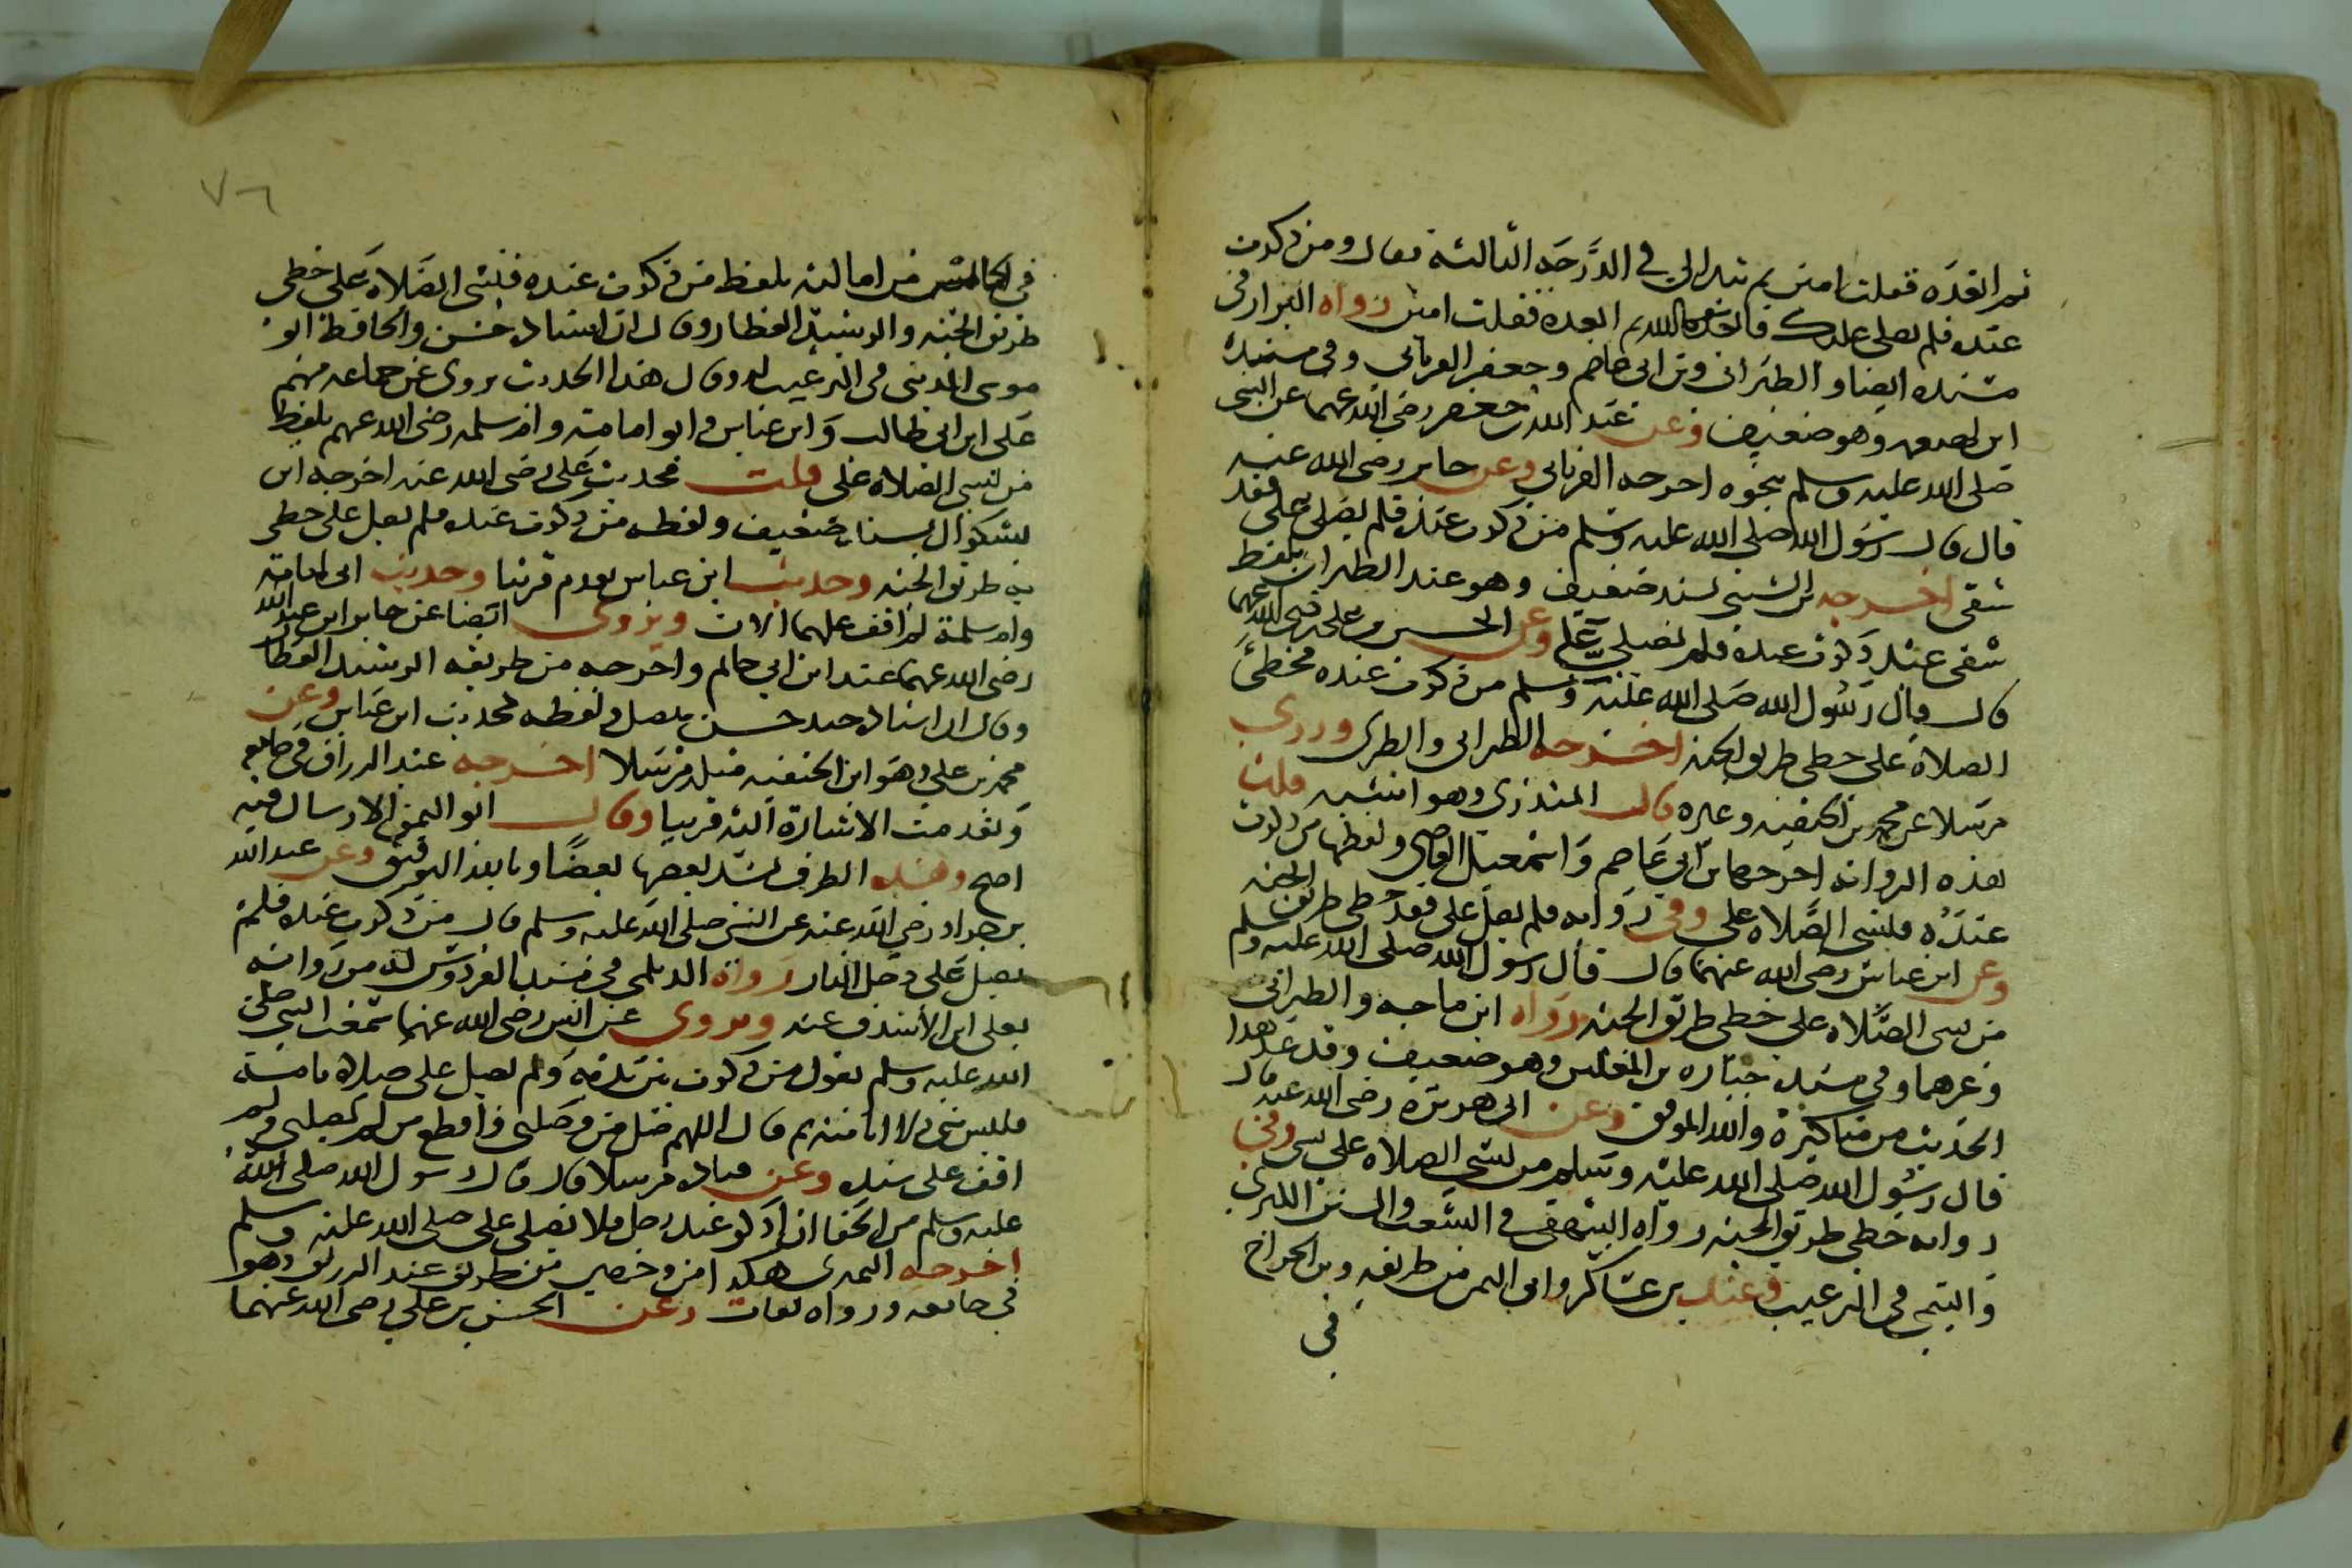 ثم ابعده فقلت امين ثم تبدا لي في الدرجة الثالثة فقال ومن ذكرت
عنده فلم يصلي عليك فابعده الله ثم ابعده فقلت امين رواه البزار في
مسنده ايضا والطبراني وبن ابي عاصم وجعفر الفريابي وفي مسنده
ابن لهيعه وهو ضعيف وعن عبد الله بن جعفر رضي الله عنهما عن النبي
صلى الله عليه وسلم بنحوه اخرجه الفريابي وعن جابر رضي الله عنه
قال قال رسول الله صلى الله عليه وسلم من ذكرت عنده فلم يصلي علي فقد
شقى اخرجه بن السني بسند ضعيف وهو عند الطبراني بلفظ
شقى عبد ذكرت عنده فلم يصلي علي وعن الحسين بن علي رضي الله عنهما
قال قال رسول الله صلى الله عليه وسلم من ذكرت عنده فخطئ
الصلاة علي خطي طريق الجنه اخرجه الطبراني والطبري وروي
مرسلا عن محمد بن الحنفيه وغيره قال المنذري وهو اشبه قلت
هذه الروايه اخرجها بن ابي عاصم واسمعيل القاضي ولفظها من ذكرت
عنده فلنسي الصلاه علي وفي روايه فلم يصل علي فقد خطي طريق الجنه
وعن ابن عباس رضي الله عنهما قال قال رسول الله صلى الله عليه وسلم
من نسي الصلاه علي خطي طريق الجنه رواه ابن ماجه والطبراني
وغيرهما وفي سنده جباره بن المغلس وهو ضعيف وقد عد هذا
الحديث من مناكيره والله الموفق وعن ابي هريره رضي الله عنه قال
قال رسول الله صلى الله عليه وسلم من نسي الصلاه علي نسي وفي
روايه خطي طريق الجنه رواه البيهقي في الشعب والسنن الكبري
والتيمي في الترغيب وعنه بن عساكر وابي اليمن من طريقه وبن الجراح
في
في الخامس من اماليه بلفظ من ذكرت عنده فنسى الصلاة علي خطي
طريق الجنه والرشيد العطار وقال ان اسناده حسن والحافظ ابو
موسى المديني في الترغيب له وقال هذا الحديث يروي عن جماعه منهم
علي ابن ابي طالب وابن عباس وابو امامة وام سلمه رضي الله عنهم بلفظ
من نسي الصلاه علي قلت فحديث علي رضي الله عنه اخرجه ابن
بشكوال بسند ضعيف ولفظه من ذكرت عنده فلم يصل علي خطي
به طريق الجنه وحديث ابن عباس تقدم قريبا وحديث ابي امامة
وام سلمة لم اقف عليهما الان ويروي ايضا عن جابر ابن عبد الله
رضي الله عنهما عند ابن ابي حاتم واخرجه من طريقه الرشيد العطار
وقال ان اسناده جيد حسن متصل ولفظه كحديث ابن عباس وعن
محمد بن علي وهو ابن الحنفيه مثله مرسلا اخرجه عبد الرزاق في جامعه
وتقدمت الاشارة اليه قريبا وقال ابو اليمن الارسال فيه
اصح وهذه الطرق يشد بعضها بعضًا وبالله التوفيق وعن عبد الله
بن جراد رضي الله عنه عن النبي صلى الله عليه وسلم قال من ذكرت عنده فلم
يصل علي دخل النار رواه الديلمي في مسند الفردوس له من روايه
يعلى ابن الاشدق عنه ويروى عن انس رضي الله عنهما سمعت النبي صلى
الله عليه وسلم يقول من ذكرت بين يديه ولم يصل علي صلاه تامة
فليس مني ولا انا منه ثم قال اللهم صل من وصلني واقطع من لم يصلني ولم
اقف على سنده وعن قتاده مرسلا قال قال رسول الله صلى الله
عليه وسلم من الجفا ان اذكر عند رجل فلا يصلي علي صلى الله عليه وسلم
اخرجه النميري هكذا من وجهين من طريق عبد الرزاق وهو
في جامعه ورواه ثقات وعن الحسن بن علي رضي الله عنهما